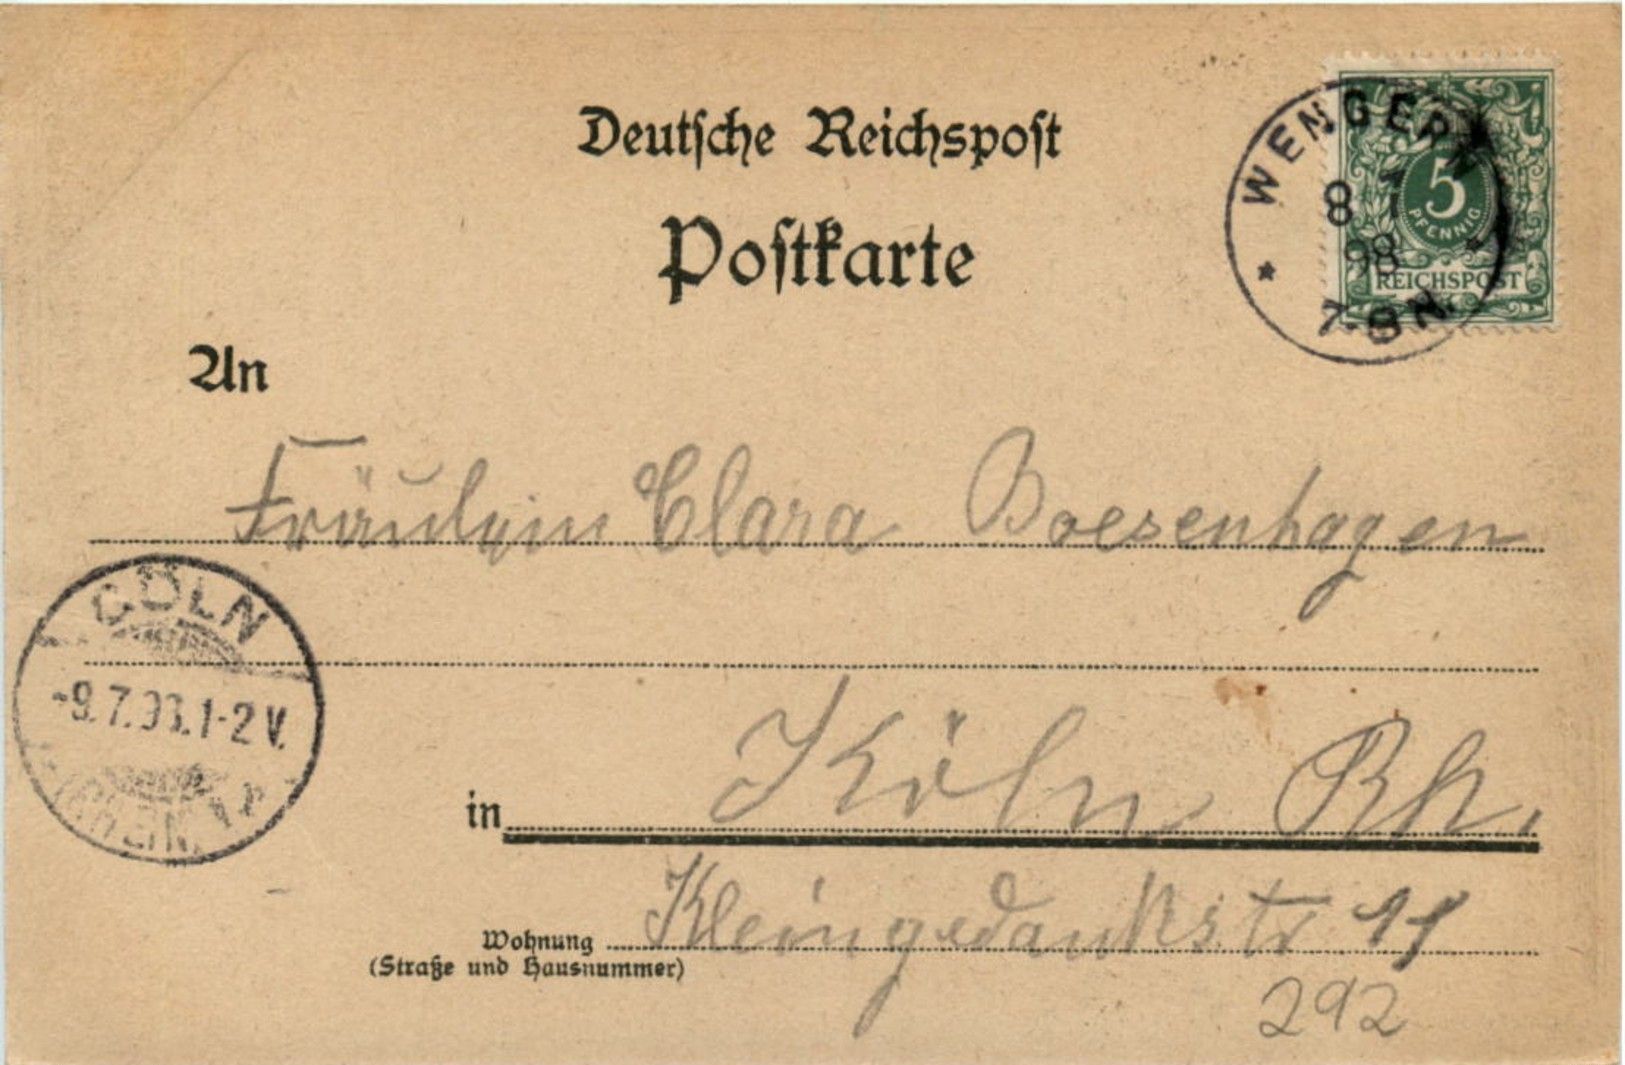 Deutsche Reichspost
Postkarte
WENGERN
8 7
98
7-8 N.
5
PFENNIG
REICHSPOST
An
Fräulein Clara Boesenhagen
CÖLN
-9.7.98.1-2 V.
(RHEIN)
in Köln Rh.
Wohnung Kleingedankstr 11
(Straße und Hausnummer)
292